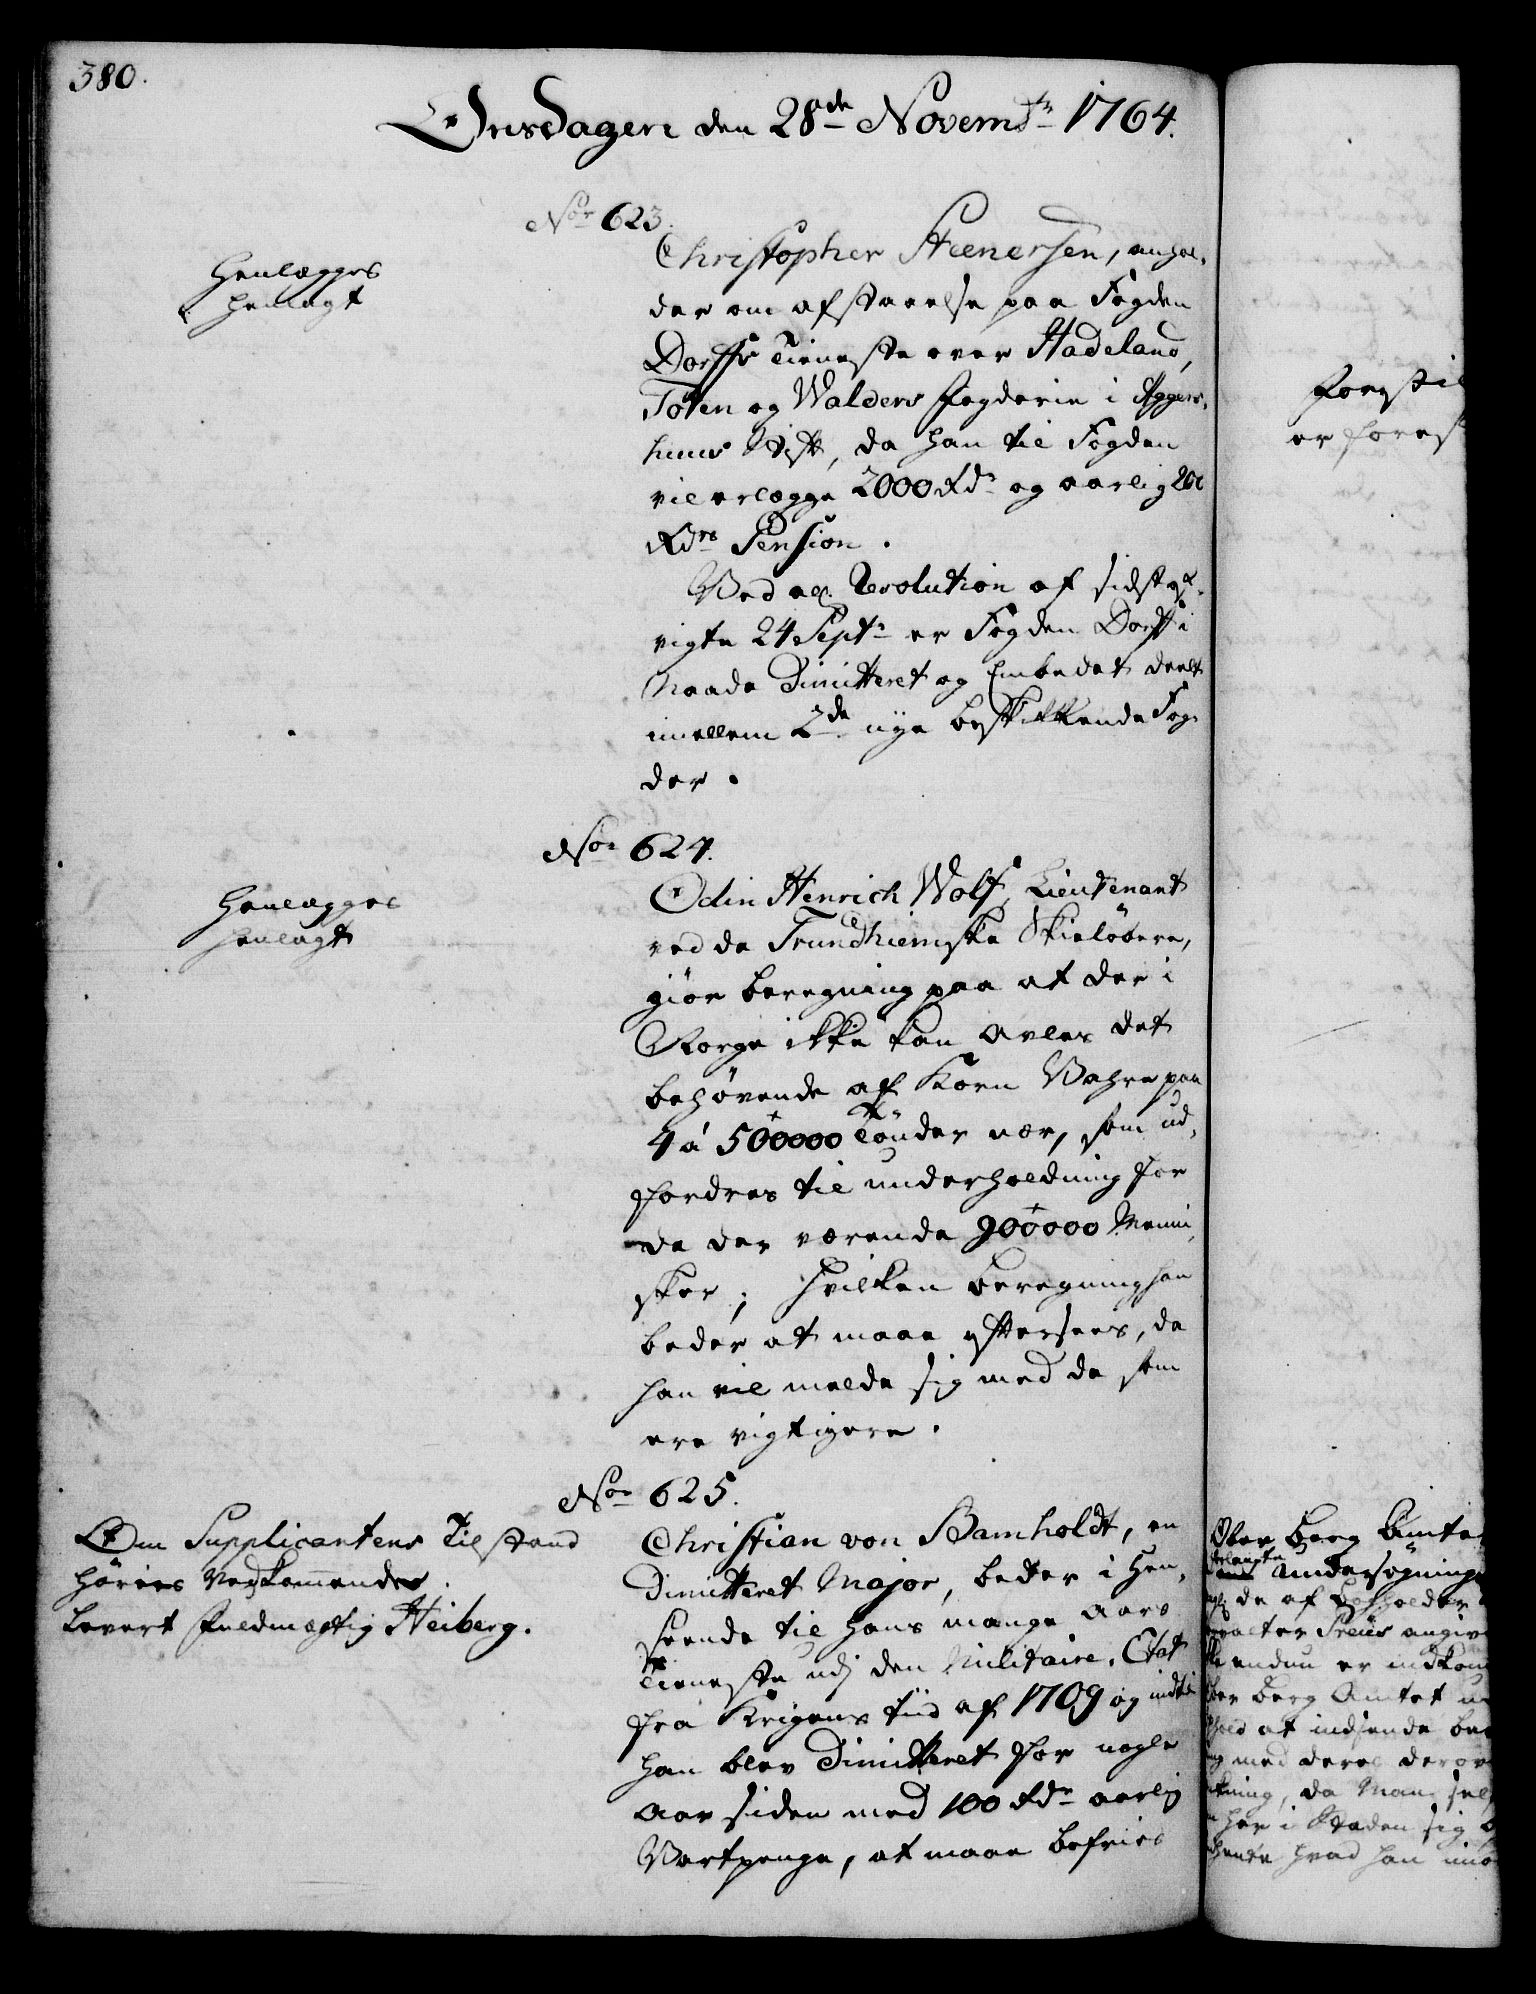 380.
Onsdagen den 28de Novembr 1764.
Nor 623.
Henlægges
henlagt
Christopher Steenersen, anhol-
der om afstaaelse paa Fogden
Dorffs Tieneste over Hadeland,
Toten og Walders Fogderie i Agger-
huus Stift, da han til Fogden
vil erlægge 2000 Rdr og aarlig 200
Rdrs Pension.
Ved all. Resolution af sidst af-
vigte 24 Septr er Fogden Dorff i
Naade Dimitteret og Embedet deelt
imellem 2de nye beskikkende Fog-
der.
Nor 624.
Henlægges
henlagt
Odin Henrich Wolf, Lieutenant
ved de Trundhiemske Skieløbere,
giør beregning paa at der i
Norge ikke kan avles det
behøvende af Korn Vahre paa
4 á 500000 Tønder nær, som ud-
fordres til underholdning for
de der værende 900000 Menni-
sker; hvilken beregning han
beder at maae eftersees, da
han vil melde sig med de som
ere vigtigere.
Nor 625.
Om Supplicantens Tilstand
høries Vedkommende.
Levert Fuldmægtig Heiberg.
Christian von Bamholdt, en
Dimitteret Major, beder i Hen-
seende til hans mange Aars
Tieneste udj den Militaire Etat
fra Krigens tiid af 1709 og indtil
han blev Dimitteret for nogle
Aar siden med 100 Rdr aarlig
Vartpenge, at maae befries
Forestil
er forest
Ober Berg Amte
forlangte Undersøgning
de af Hytte
angiv
endnu er indkom
Ober Berg Amtet
at indsende
med deres derov
da Man sel
her i Staden sig
hvad han